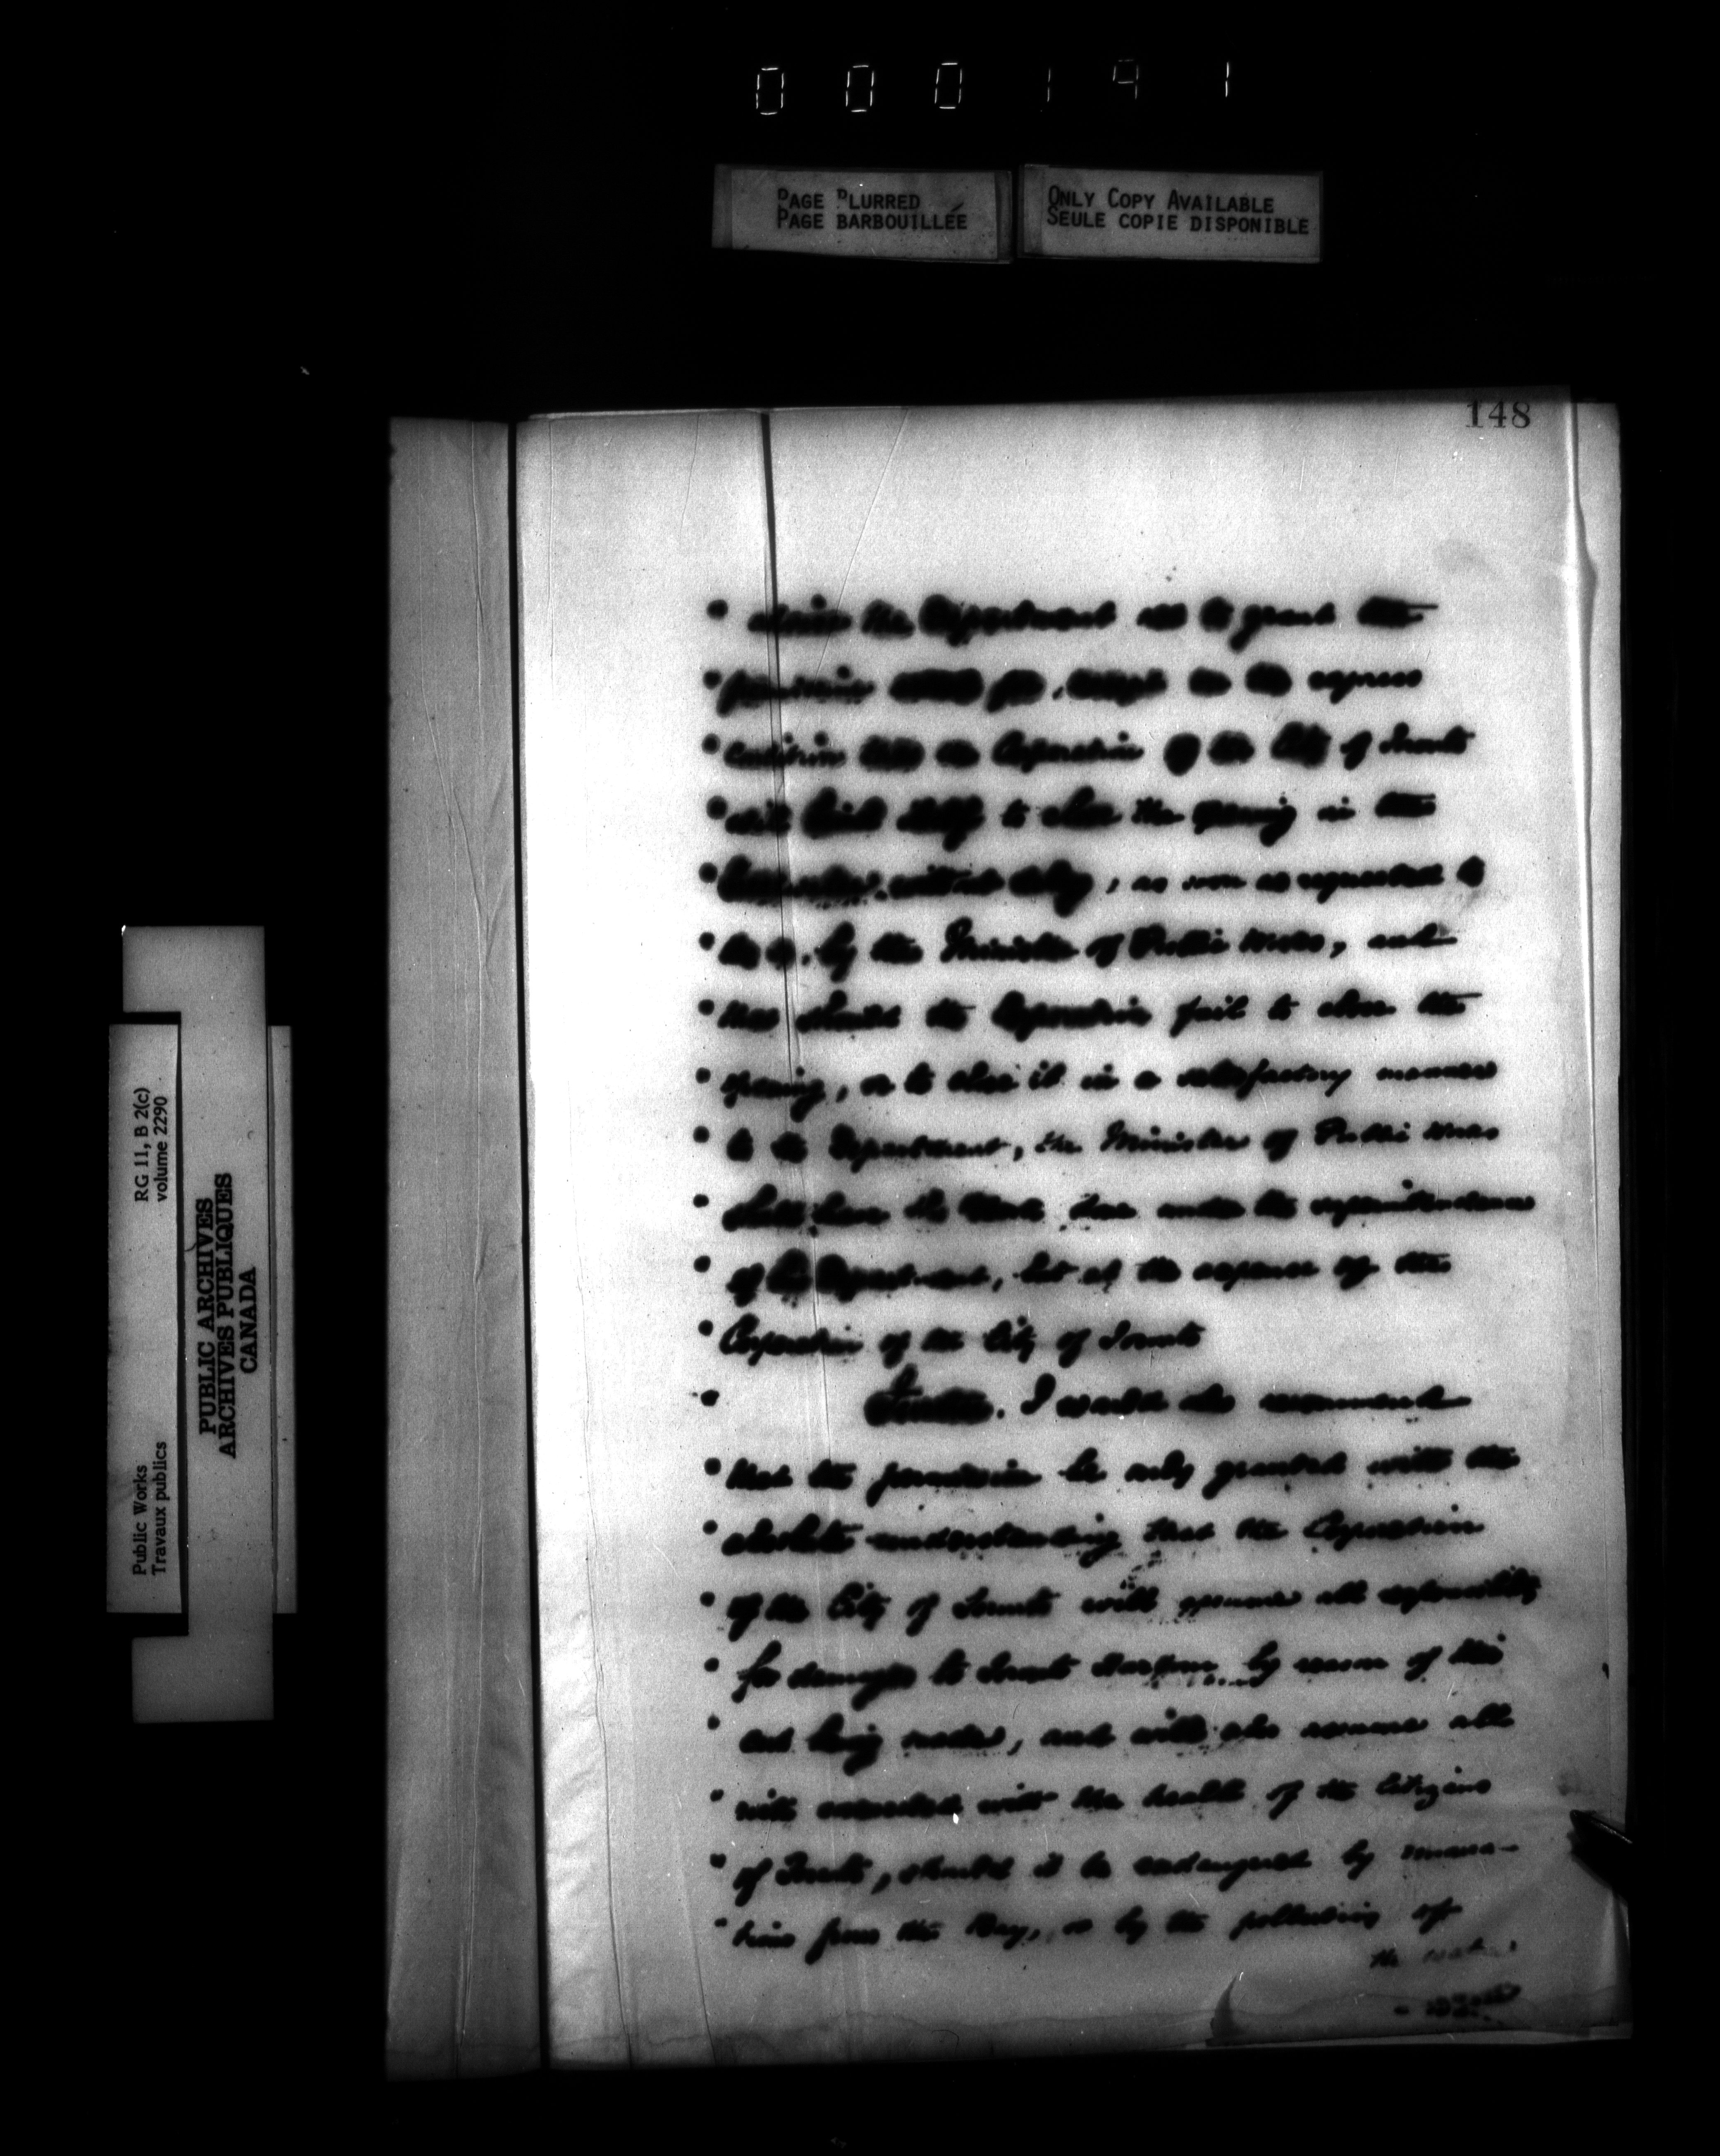 000191
PAGE BLURRED
PAGE BARBOUILLÉE
ONLY COPY AVAILABLE
SEULE COPIE DISPONIBLE
148
" advise the Department not to grant the
" permission asked for, except on the express
" condition that the Corporation of the City of Toronto
" will bind itself to close the opening in the
" without delay, as soon as requested to
" do so, by the Minister of Public Works, and
" that should the Corporation fail to close the
" opening, or to close it in a satisfactory manner
" to the Department, the Minister of Public Works
" shall have the work done under the superintendence
" of the Department, but at the expense of the
" Corporation of the City of Toronto
" Further. I would also recommend
" that the permission be only granted with the
" absolute understanding that the Corporation
" of the City of Toronto will assume all responsibility
" for damages to Toronto Harbour by reason of this
" cut being made, and will also assume all
" risks connected with the health of the Citizens
" of Toronto, should it be endangered by emana-
" tions from the Bay, or by the polluting of
the water
RG 11, B 2(c)
volume 2290
PUBLIC ARCHIVES
ARCHIVES PUBLIQUES
CANADA
Public Works
Travaux publics